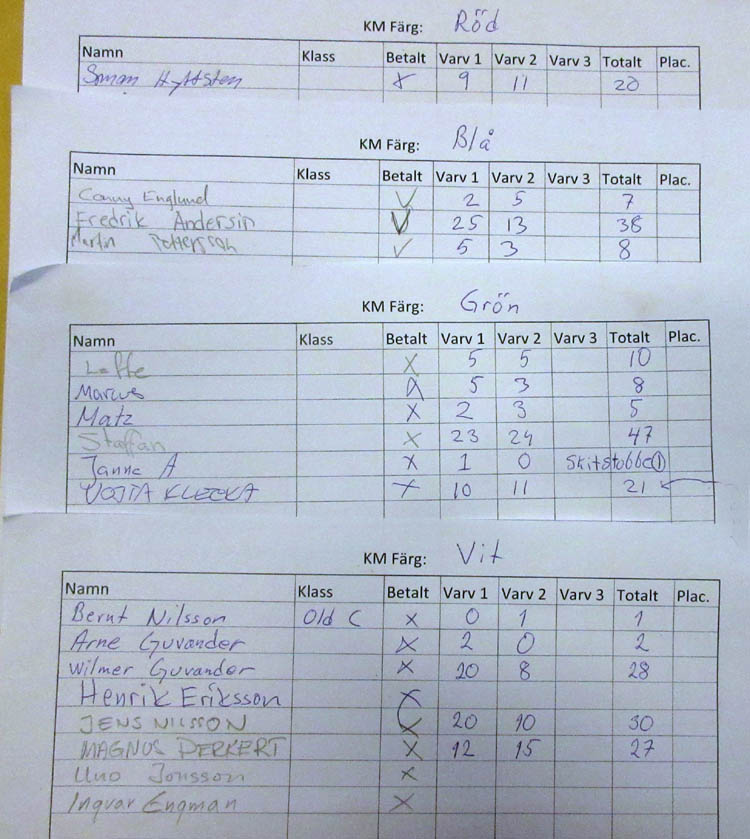 KM Färg: Röd
Namn Klass Betalt Varv 1 Varv 2 Varv 3 Totalt Plac.
X 9 11 20
KM Färg: Blå
Namn Klass Betalt Varv 1 Varv 2 Varv 3 Totalt Plac.
Conny Englund V 2 5 7
Fredrik Andersin V 25 13 38
Martin Pettersson V 5 3 8
KM Färg: Grön
Namn Klass Betalt Varv 1 Varv 2 Varv 3 Totalt Plac.
Laffe X 5 5 10
Marcus X 5 3 8
Matz X 2 3 5
Staffan X 23 24 47
Janne A X 1 0 Skitstobbe 1
VOJTA KLECKA X 10 11 21
KM Färg: Vit
Namn Klass Betalt Varv 1 Varv 2 Varv 3 Totalt Plac.
Bernt Nilsson Old C X 0 1 1
Arne Guvander X 2 0 2
Wilmer Guvander X 20 8 28
Henrik Eriksson X
JENS NILSSON X 20 10 30
MAGNUS DERKERT X 12 15 27
Uno Jonsson X
Ingvar Engman X